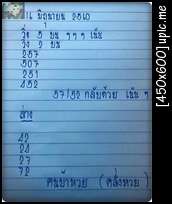 16 มิถุนายน 2560
วิ่ง 5 บน ๆ ๆ ๆ เน้น
วิ่ง 2 บน
257
507
251
452
57/52 กลับด้วย เน้น ๆ
ล่าง
42
24
27
72
คนบ้าหวย (คลั่งหวย)
[450x600] upic.me